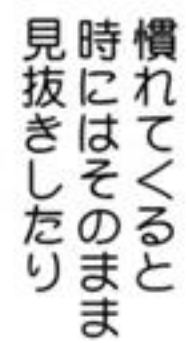 慣れてくると
時にはそのまま
見抜きしたり